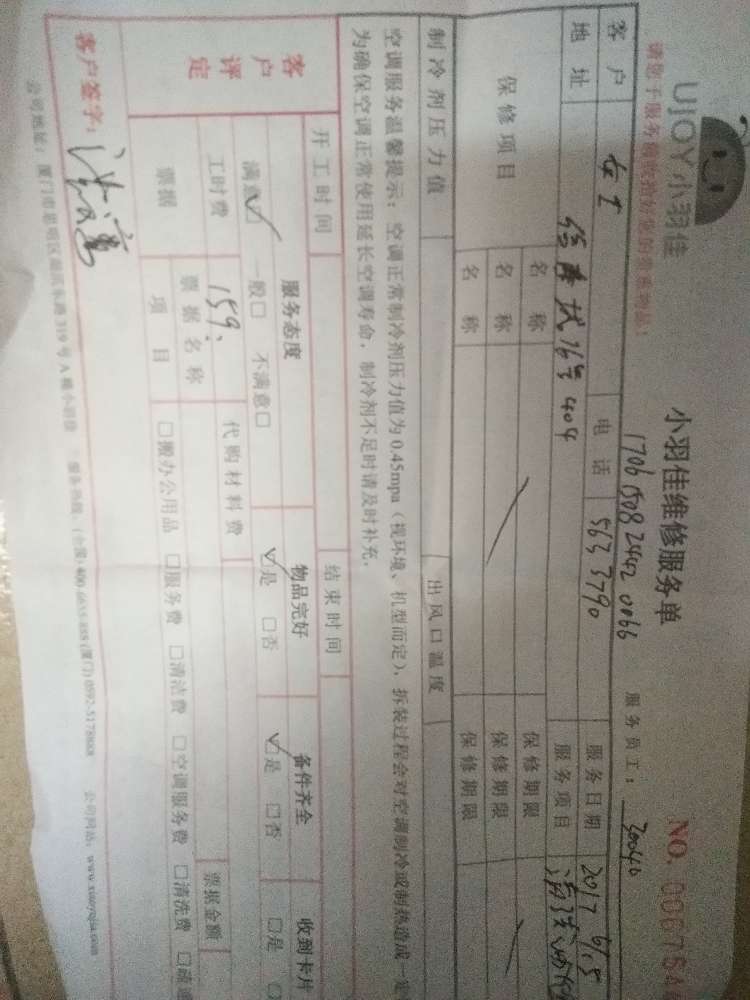 UJOY小羽佳
小羽佳维修服务单
NO. 006754
请您于服务前收拾好您的贵重物品！
1706 1508 2442 0066
服务员工：30040
客户 女士 电话 563 3790 服务日期 2017 6.5
地址 16号404 服务项目
保修项目 名称 保修期限
名称 保修期限
名称 保修期限
制冷剂压力值 出风口温度
空调服务温馨提示：空调正常制冷剂压力值为0.45mpa（视环境、机型而定），拆装过程会对空调制冷或制热造成一定
为确保空调正常使用延长空调寿命，制冷剂不足时请及时补充。
开工时间 结束时间
客户评定 服务态度 物品完好 备件齐全 收到卡片
满意☑ 一般□ 不满意□ ☑是 □否 ☑是 □否 □是
工时费 159. 代购材料费
票据 票据名称 票据金额
项目 □搬办公用品 □服务费 □清洁费 □空调服务费 □清洗费 □疏通
客户签字：
公司地址：厦门市思明区 319号A幢小羽佳 服务热线：(全国)400-6655-888 (厦门)0592-5178888 公司网站：www.xiaoyujia.com